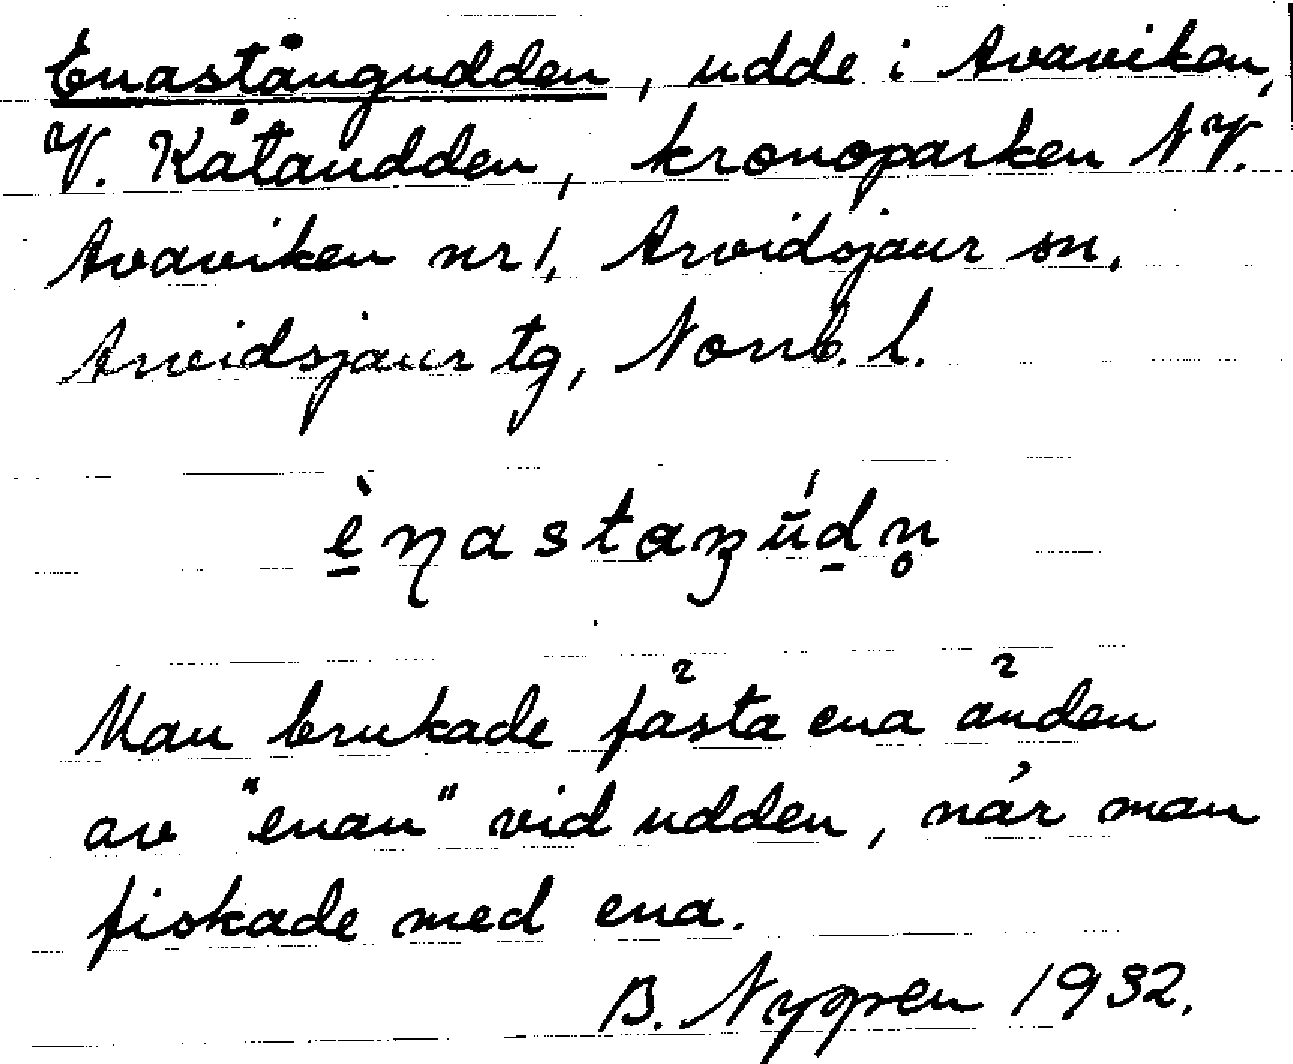 Enastångudden, udde i Avaviken,
V. Kåtaudden, kronoparken NV.
Avaviken nr 1, Arvidsjaur sn,
Arvidsjaur tg, Norrb. l.
Man brukade fästa ena änden
av "enan" vid udden, när man
fiskade med ena.
B. Nygren 1932.